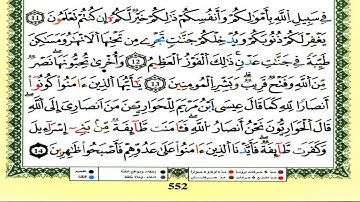 فِي سَبِيلِ اِ۬للَّهِ بِأَمْوَٰلِكُمْ وَأَنفُسِكُمْ ذَٰلِكُمْ خَيْرٌ لَّكُمْ إِن كُنتُمْ تَعْلَمُونَ 11
يَغْفِرْ لَكُمْ ذُنُوبَكُمْ وَيُدْخِلْكُمْ جَنَّٰتٍ تَجْرِے مِن تَحْتِهَا اَ۬لَانْهَٰرُ وَمَسَٰكِنَ
طَيِّبَةً فِي جَنَّٰتِ عَدْنٍ ذَٰلِكَ اَ۬لْفَوْزُ اُ۬لْعَظِيمُ 12 وَأُخْرَىٰ تُحِبُّونَهَا نَصْرٌ
مِّنَ اَ۬للَّهِ وَفَتْحٌ قَرِيبٌ وَبَشِّرِ اِ۬لْمُومِنِينَ 13 يَٰأَيُّهَا اَ۬لذِينَ ءَامَنُواْ كُونُواْ
أَنصَارًا لِّلهِ كَمَا قَالَ عِيسَى اَ۪بْنُ مَرْيَمَ لِلْحَوَارِيِّـۧنَ مَنَ اَنصَارِيَ إِلَى اَ۬للَّهِ
قَالَ اَ۬لْحَوَارِيُّونَ نَحْنُ أَنصَارُ اُ۬للَّهِ فَـَٔامَنَت طَّآئِفَةٌ مِّنۢ بَنِے إِسْرَآءِيلَ
وَكَفَرَت طَّآئِفَةٌ فَأَيَّدْنَا اَ۬لذِينَ ءَامَنُواْ عَلَىٰ عَدُوِّهِمْ فَأَصْبَحُواْ ظَٰهِرِينَ 14
552